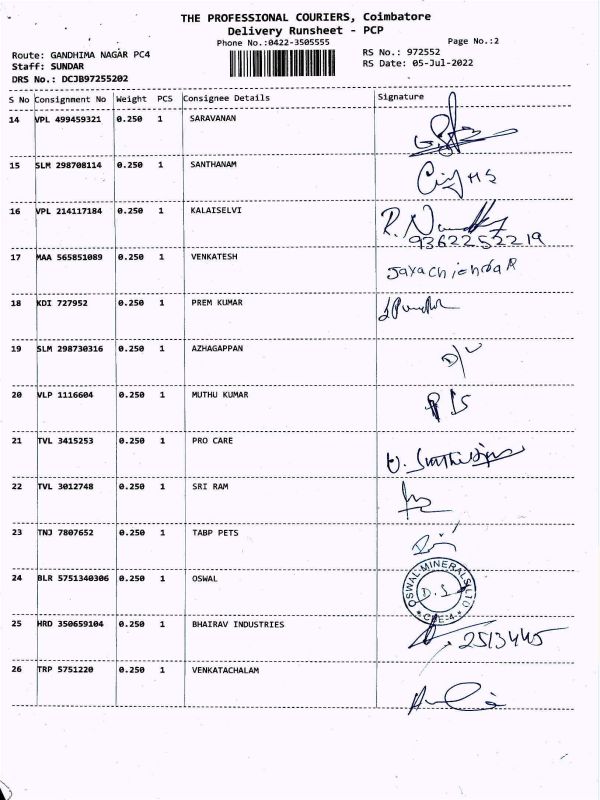 THE PROFESSIONAL COURIERS, Coimbatore
Delivery Runsheet - PCP
Phone No.:0422-3505555
Page No.:2
Route: GANDHIMA NAGAR PC4
RS No.: 972552
Staff: SUNDAR
RS Date: 05-Jul-2022
DRS No.: DCJB97255202
S No Consignment No Weight PCS Consignee Details Signature
14 VPL 499459321 0.250 1 SARAVANAN
15 SLM 298708114 0.250 1 SANTHANAM
16 VPL 214117184 0.250 1 KALAISELVI
9362252219
17 MAA 565851089 0.250 1 VENKATESH
18 KDI 727952 0.250 1 PREM KUMAR
19 SLM 298730316 0.250 1 AZHAGAPPAN
20 VLP 1116604 0.250 1 MUTHU KUMAR
21 TVL 3415253 0.250 1 PRO CARE
22 TVL 3012748 0.250 1 SRI RAM
23 TNJ 7807652 0.250 1 TABP PETS
24 BLR 5751340306 0.250 1 OSWAL
OSWAL MINERALS LTD
* CBE-4 *
25 HRD 350659104 0.250 1 BHAIRAV INDUSTRIES
2513445
26 TRP 5751220 0.250 1 VENKATACHALAM